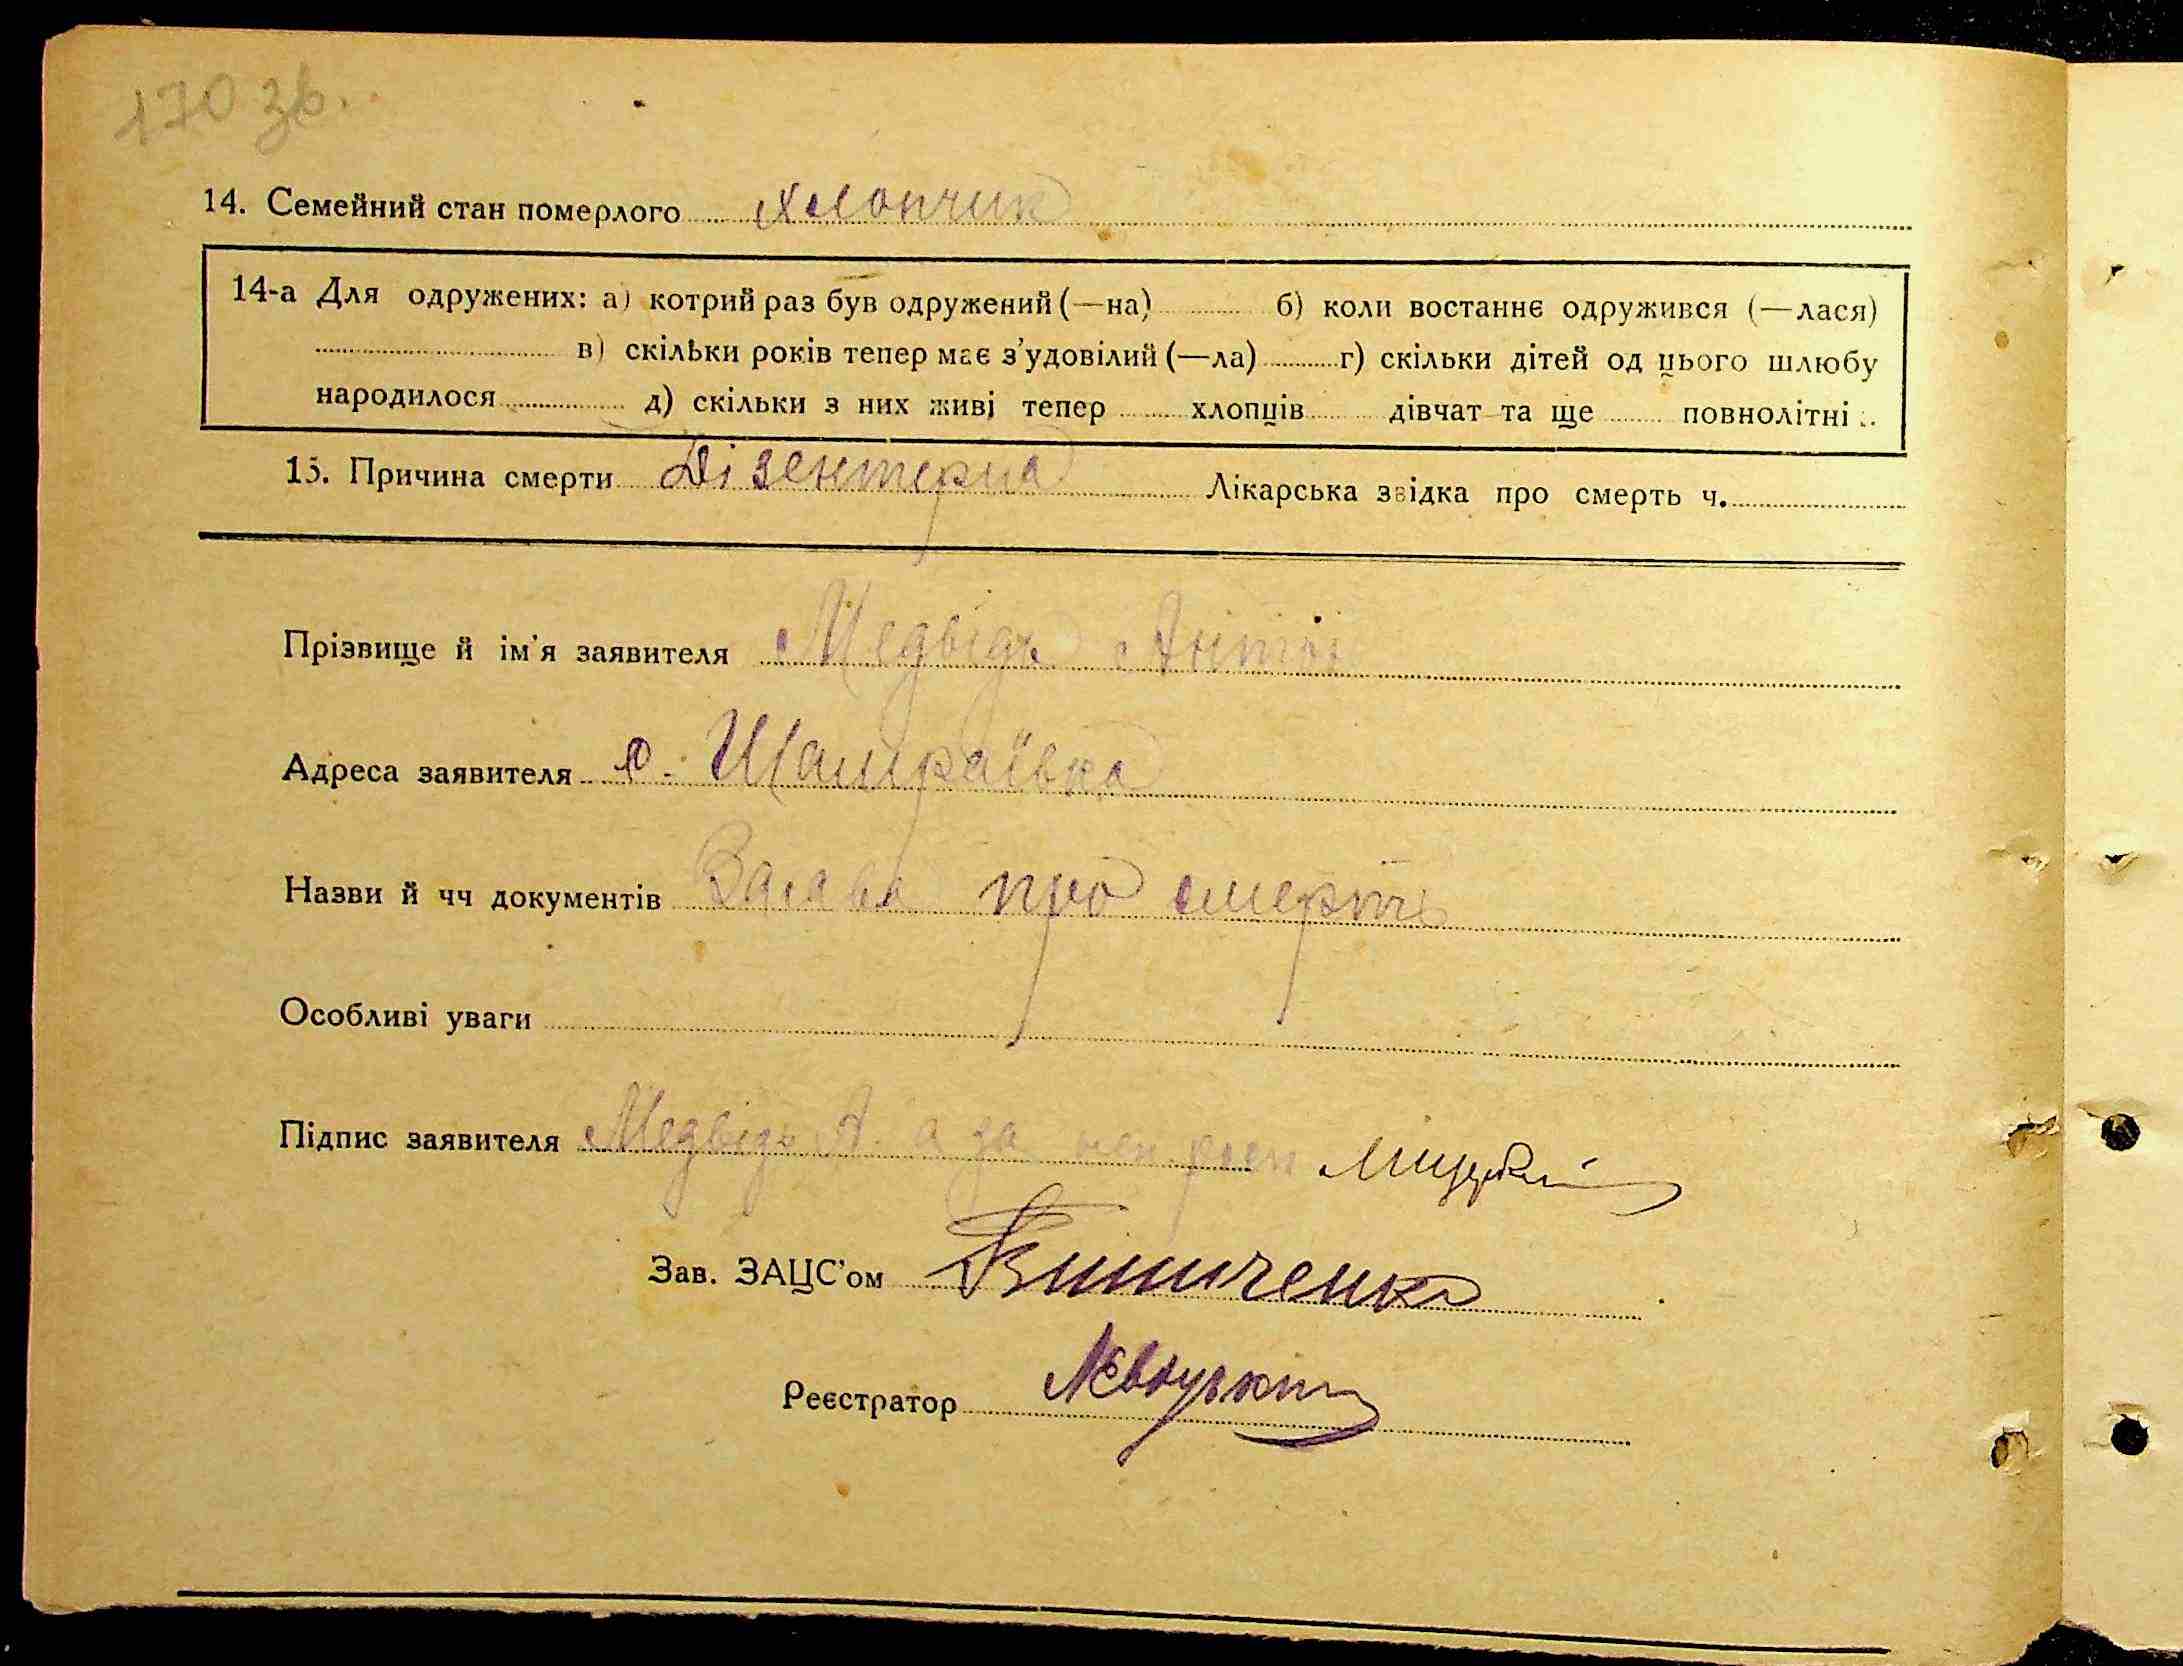 170 зв.
14. Семейний стан померлого хлопчик
14-а Для одружених: а) котрий раз був одружений (—на) б) коли востаннє одружився (—лася)
в) скільки років тепер має з'удовілий (—ла) г) скільки дітей од цього шлюбу
народилося д) скільки з них живі тепер хлопців дівчат та ще повнолітні
15. Причина смерти Дізентерия Лікарська звідка про смерть ч.
Прізвище й ім'я заявителя Медвідь Антін
Адреса заявителя с. Шамраївка
Назви й чч документів Заява про смерть
Особливі уваги
Підпис заявителя Медвідь А. а за
Зав. ЗАЦС'ом Винниченко
Реєстратор